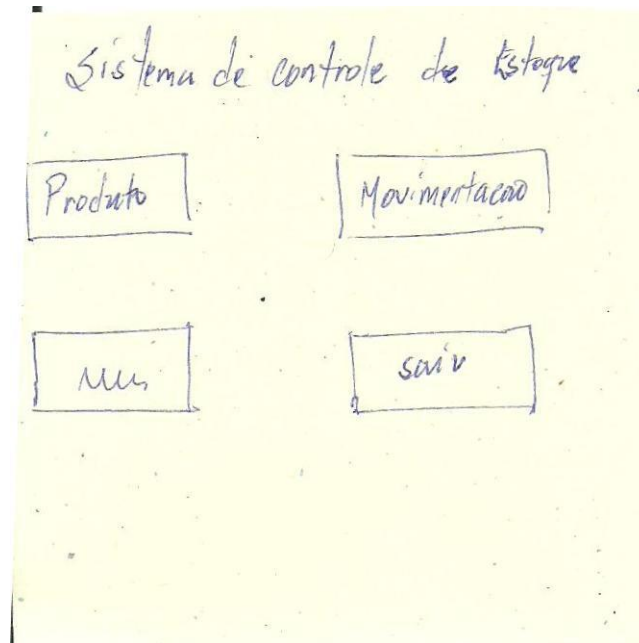 Sistema de controle de Estoque
Produto
Movimentacao
sair